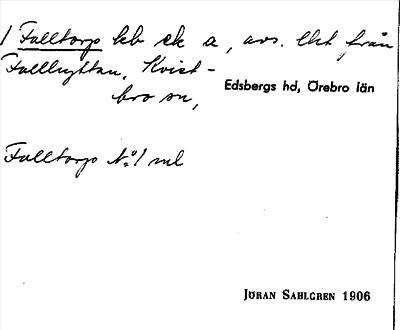 1 Falltorp lvb ek a, avs. lht från
Fallhyttan, Kvist-
bro sn,
Edsbergs hd, Örebro län
Falltorp No 1 ml
JÖRAN SAHLGREN 1906